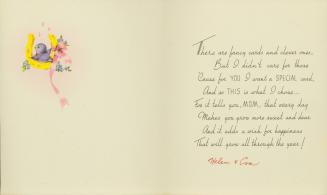 There are fancy cards and clever ones,
But I didn't care for those
'Cause for YOU I want a SPECIAL card,
And so THIS is what I chose...
For it tells you, MOM, that every day
Makes you grow more sweet and dear
And it adds a wish for happiness
That will grow all through the year!
Helen &